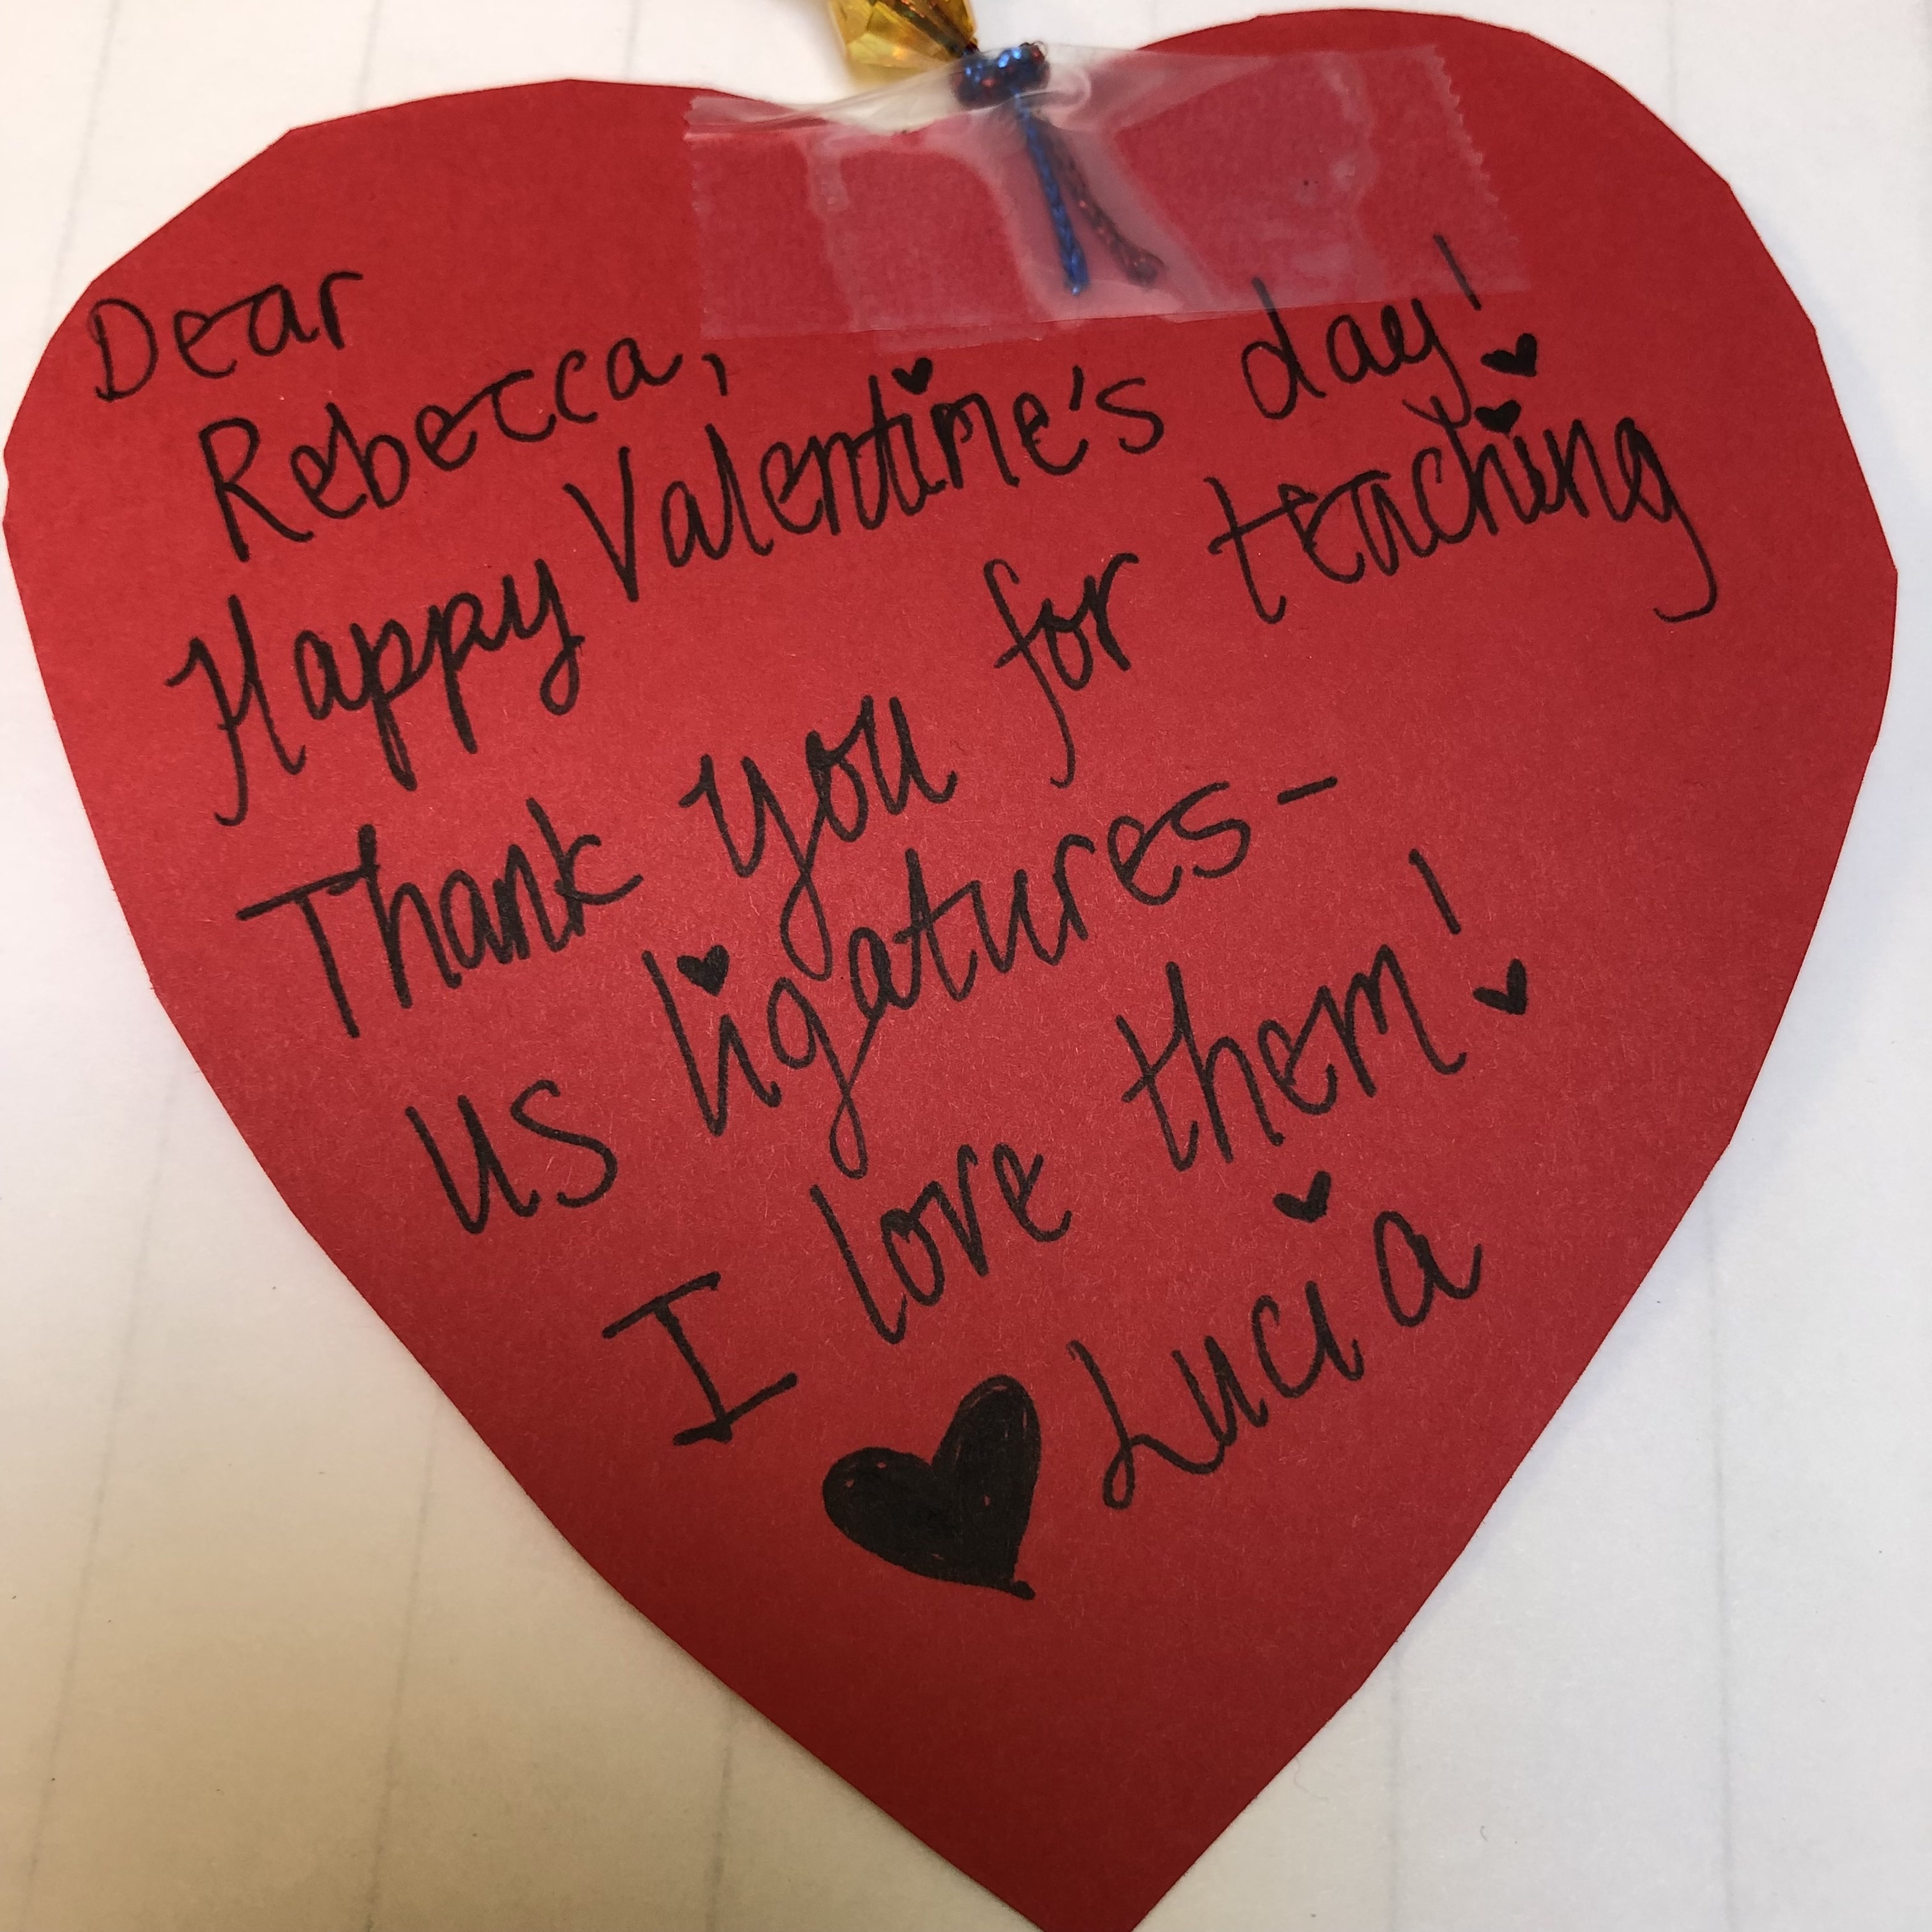 Dear
Rebecca,
Happy Valentine's day!
Thank you for teaching
us ligatures-
I love them!
♥ Lucia